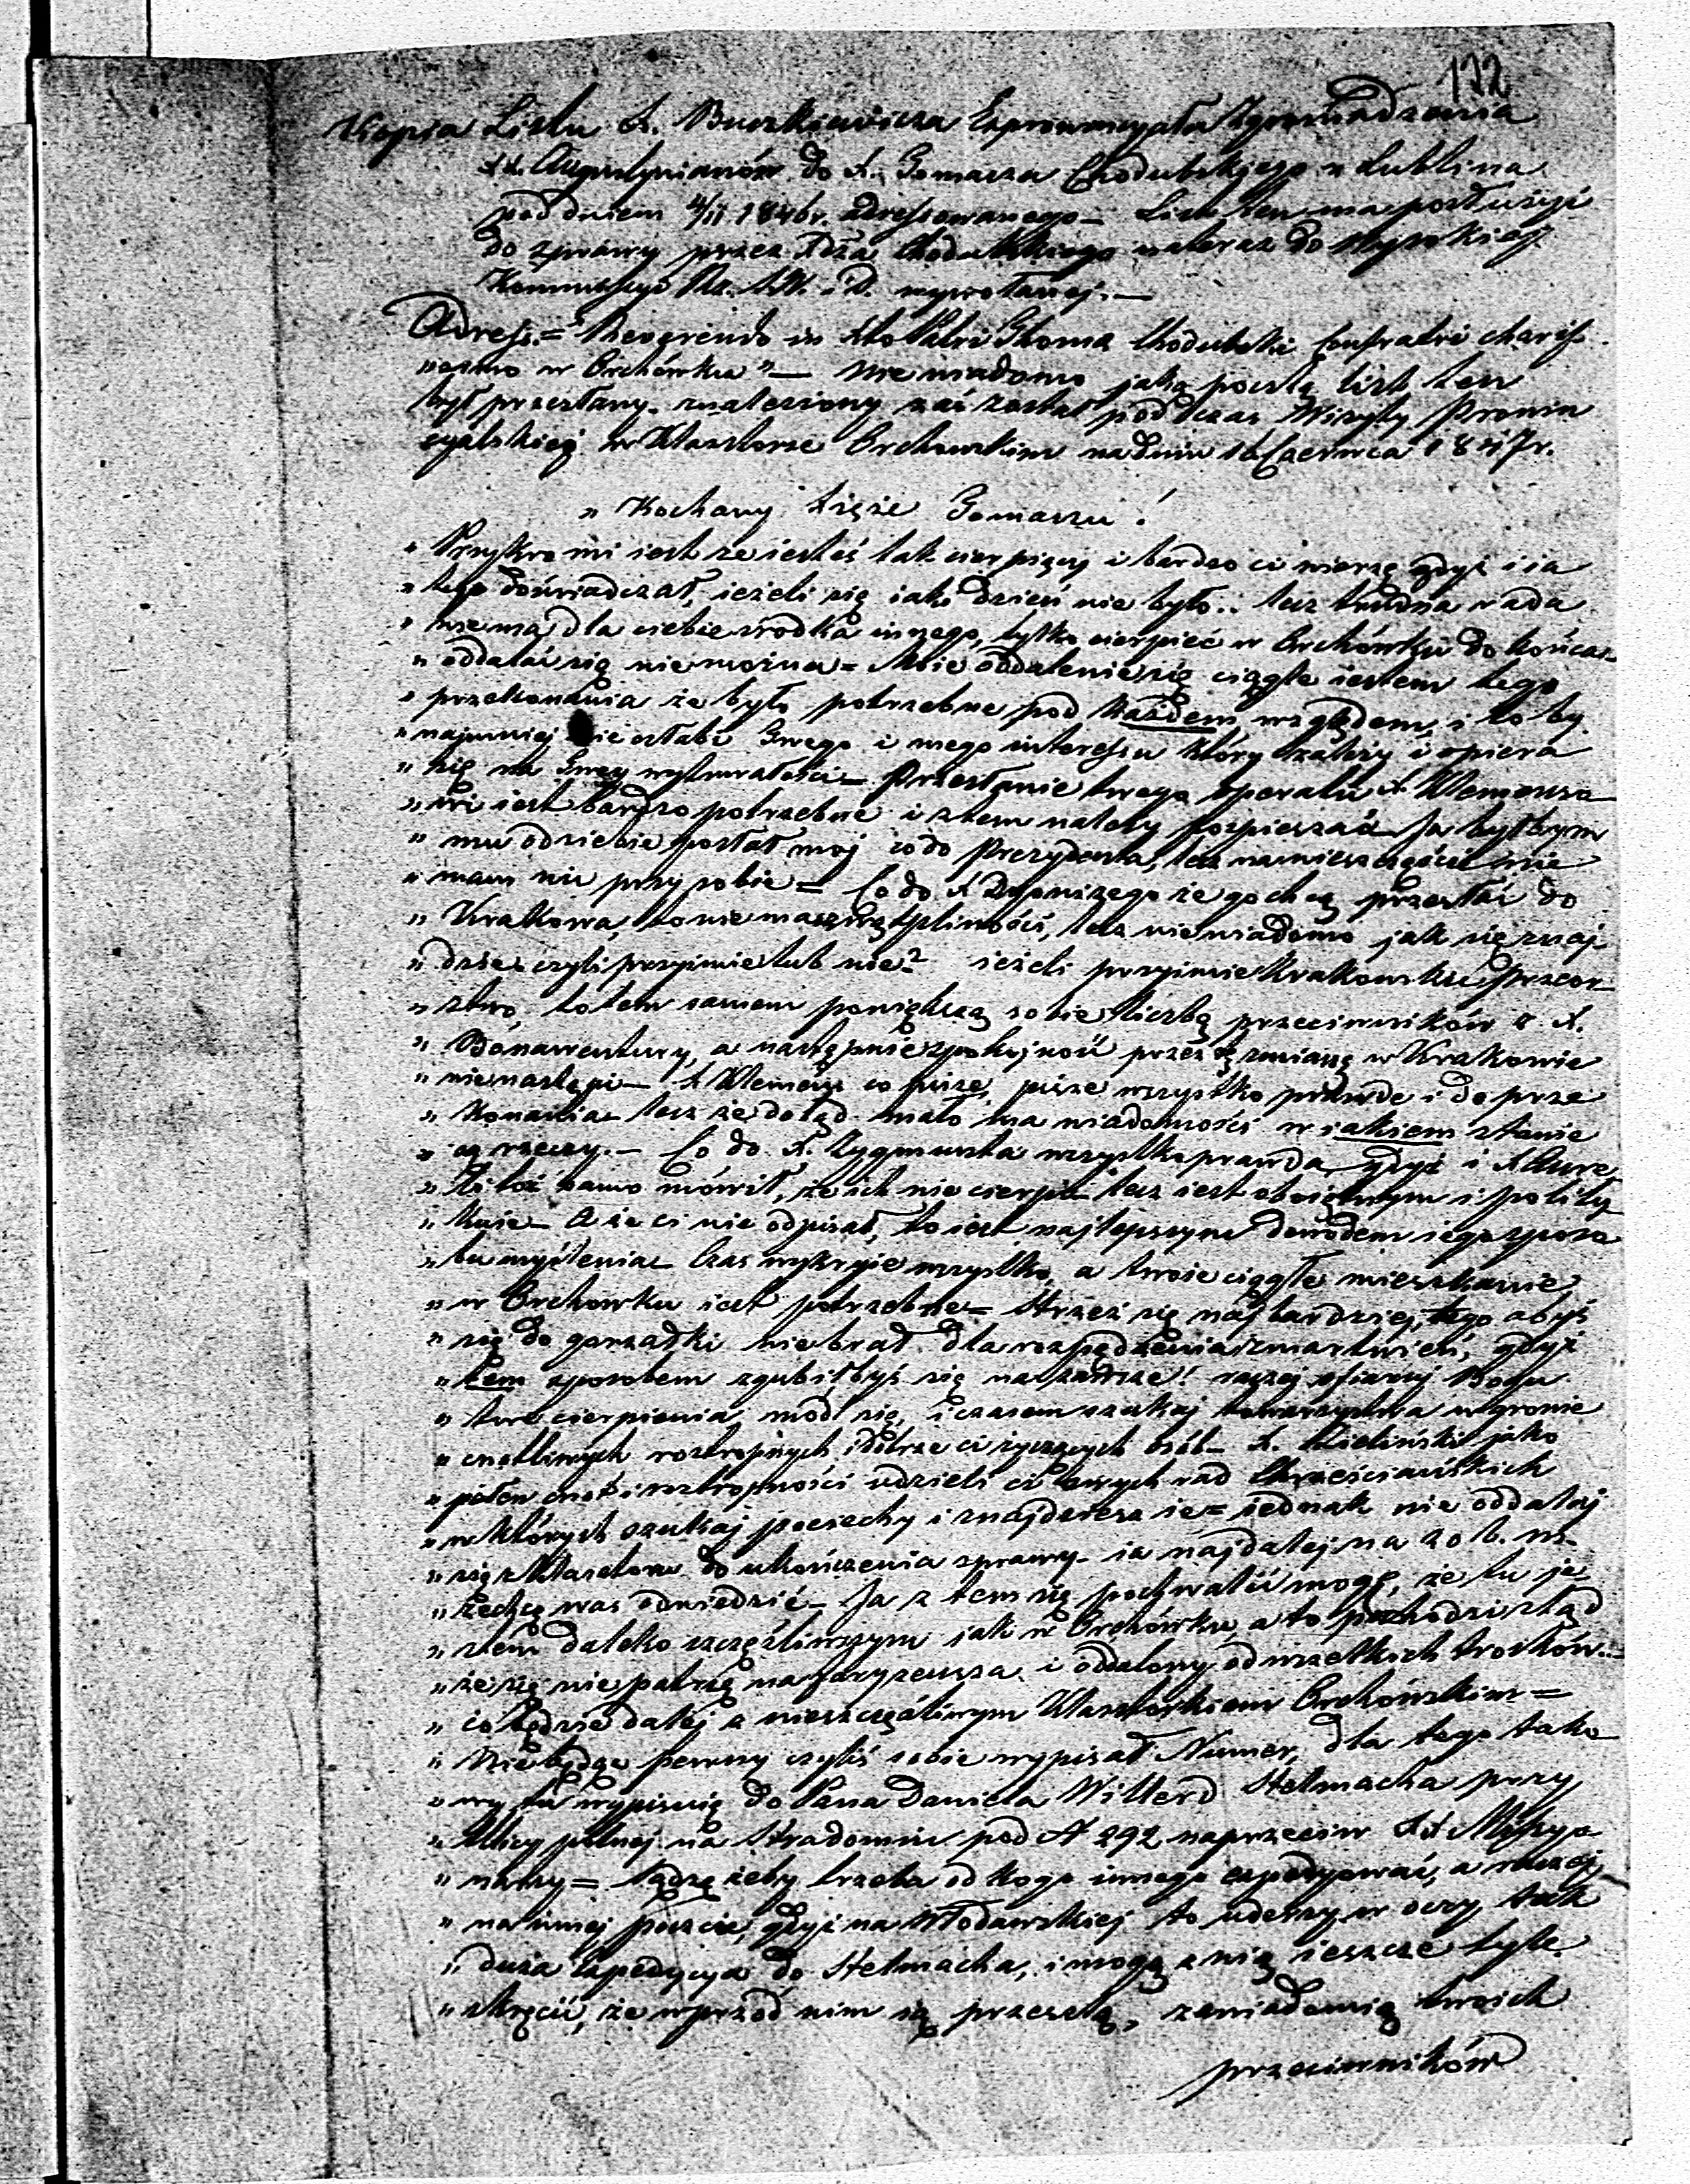 172
Kopia Listu X. Buczkiewicza Exprowincyała Zgromadzenia
XX. Augustynianów do X. Tomasza Chodubskiego z Lublina
pod dniem 4/11 1846 r. adressowanego – List ten ma posłużyć
do sprawy przez Xdza Chodubskiego nateraz do Wysokiej
Kommissyi Rz. S.W. i D. wywołanej. –
Adress. = "Reverendo in Xto Patri Thoma Chodubski Confratri chariss
"osimo w Orchówku" – Nie wiadomo jaką pocztą list ten
był przesłany, znaleziony zaś został podczas Wizyty Prowin
cyalskiej w Klasztorze Orchowskim na dniu 16 Czerwca 1847 r.
" Kochany Xięże Tomaszu!
" Przykro mi iest że iesteś tak cierpiący i bardzo ci wierzę gdyż i ia
" tego doświadczał, ieżeli się iaki dzień nie było.. lecz trudna rada
" niema dla ciebie srodka innego, tylko cierpieć w Orchówku do końca –
" oddalać się nie można = Moie oddalenie się ciągle iestem tego
" przekonania że było potrzebne pod każdem względem, i to by
" najmniej nie osłabi Twego i mego interessu który należy i opiera
" się na Twey wytrwałości – Przesłanie twego operatu X Klemensa
" wi iest bardzo potrzebne i z tem należy pospieszać – Ja byłbym
" mu odsiebie posłał moj co do Prezydenta, lecz na nieszczęście nie
" mam nic przy sobie = Co do X Dyonizego że go chcą przesłać do
" Krakowa, to nie masz wątpliwości, lecz nie wiadomo jak się znaj
" dzie – czyli przyimie lub nie? ieżeli przyimie Krakowskie Przeor
" stwo, to tem samem powiększą sobie liczbę przeciwników z X.
" Bonawentury, a następnie spokojność przez tę zmianę w Krakowie
" nie nastąpi – X Klemens co pisze, pisze wszystko prawdę i do prze
" konania – lecz że dotąd mało ma wiadomości w iakiem stanie
" są rzeczy. – Co do X. Zygmunta wszystko prawda, gdyż i X
" to toż samo mówił, że ich nie cierpi – lecz iest oboiętnym i polity
" kuie – A że ci nie odpisał, to iest najlepszym dowodem iego sposo
" bu myślenia – Czas wykryie wszystko, a twoie ciągłe mieszkanie
" w Orchówku iest potrzebne = Strzeż się najbardziej tego abyś
" się do gorzałki nie brał dla rozpędzenia zmartwień, gdyż
" tem sposobem zgubiłbyś się na zawsze! raczej ofiaruj Bogu
" twe cierpienia, módl się, i czasem szukaj towarzystwa w gronie
" cnotliwych roztropnych i dobrze ci życzących osób – X. Zieliński jako
" pełen cnot i roztropności udzieli ci swych rad Chrześciańskich
" w których szukaj pociechy i znajdziesz ie = iednak nie oddalaj
" się z Klasztoru do ukończenia sprawy – ia najdalej na 20 b. m.
" zechcę was odwiedzić – Ja z tem się pochwalić mogę, że tu je
" stem daleko szczęśliwszym iak w Orchówku, a to pochodzi ztąd
" że się nie patrzę na faryzeusza i oddalony od wszelkich trosków. –
" co będzie dalej z nieszczęśliwym Klasztorkiem Orchówskim =
" Nie będąc pewny czyliś sobie wypisał Numer, dla tego tako
" wy tu wypisuię do Pana Daniela Witterd Stelmacha przy
" Ulicy polnej na Stradomiu pod N 292 naprzeciw XX Missyo
" narzy = Sądzę żeby trzeba od kogo innego expedyować, a raczej
" na innej poczcie, gdyż na Włodawskiej to uderzy w oczy tak
" duża expedycya do Stelmacha, i mogą z nią ieszcze tyle
" skręcić, że wprzód nim są prześlą, zawiadomią twoich
przeciwników